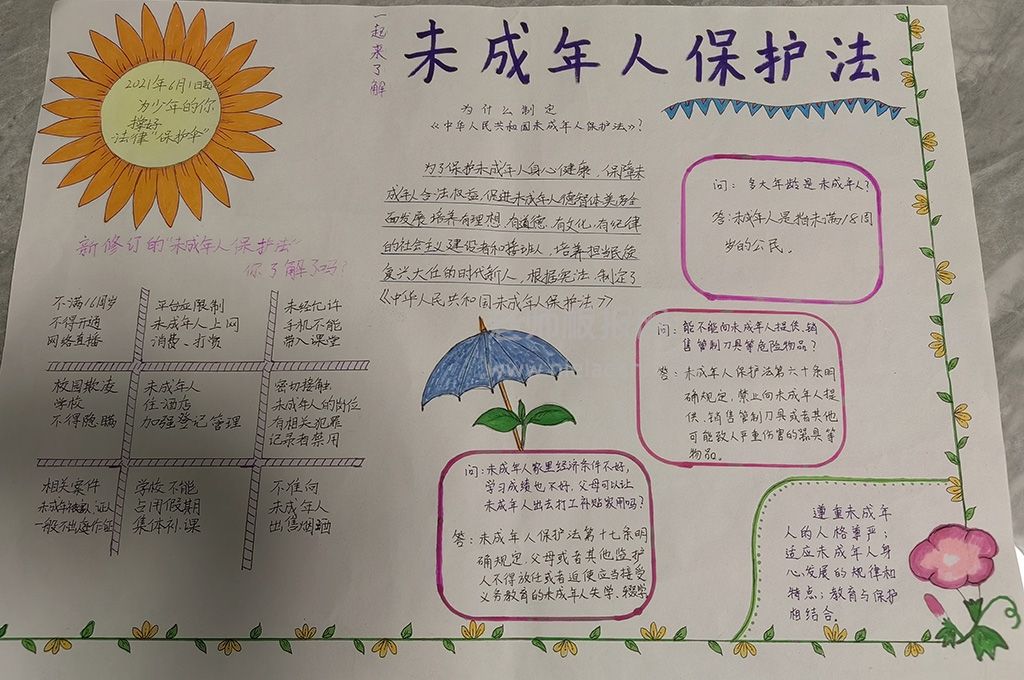 一起来了解
未成年人保护法
2021年6月1日起
为少年的你
撑好
法律“保护伞”
为什么制定
《中华人民共和国未成年人保护法》?
为了保护未成年人身心健康,保障未
成年人合法权益,促进未成年人德智体美劳全
面发展,培养有理想、有道德、有文化、有纪律
的社会主义建设者和接班人,培养担当民族
复兴大任的时代新人,根据宪法,制定了
《中华人民共和国未成年人保护法》
新修订的“未成年人保护法”
你了解了吗?
不满16周岁
不得开通
网络直播
平台应限制
未成年人上网
消费、打赏
未经允许
手机不能
带入课堂
校园欺凌
学校
不得隐瞒
未成年人
住酒店
加强登记管理
密切接触
未成年人的岗位
有相关犯罪
记录者禁用
相关案件
未成年被害人、证人
一般不出庭作证
学校不能
占用假期
集体补课
不准向
未成年人
出售烟酒
问:多大年龄是未成年人?
答:未成年人是指未满18周
岁的公民。
问:能不能向未成年人提供、销
售管制刀具等危险物品?
答:未成年人保护法第六十条明
确规定,禁止向未成年人提
供、销售管制刀具或者其他
可能致人严重伤害的器具等
物品。
问:未成年人家里经济条件不好,
学习成绩也不好,父母可以让
未成年人出去打工补贴家用吗?
答:未成年人保护法第十七条明
确规定,父母或者其他监护
人不得放任或者迫使应当接受
义务教育的未成年人失学、辍学
遵重未成年
人的人格尊严;
适应未成年人身
心发展的规律和
特点;教育与保护
相结合。